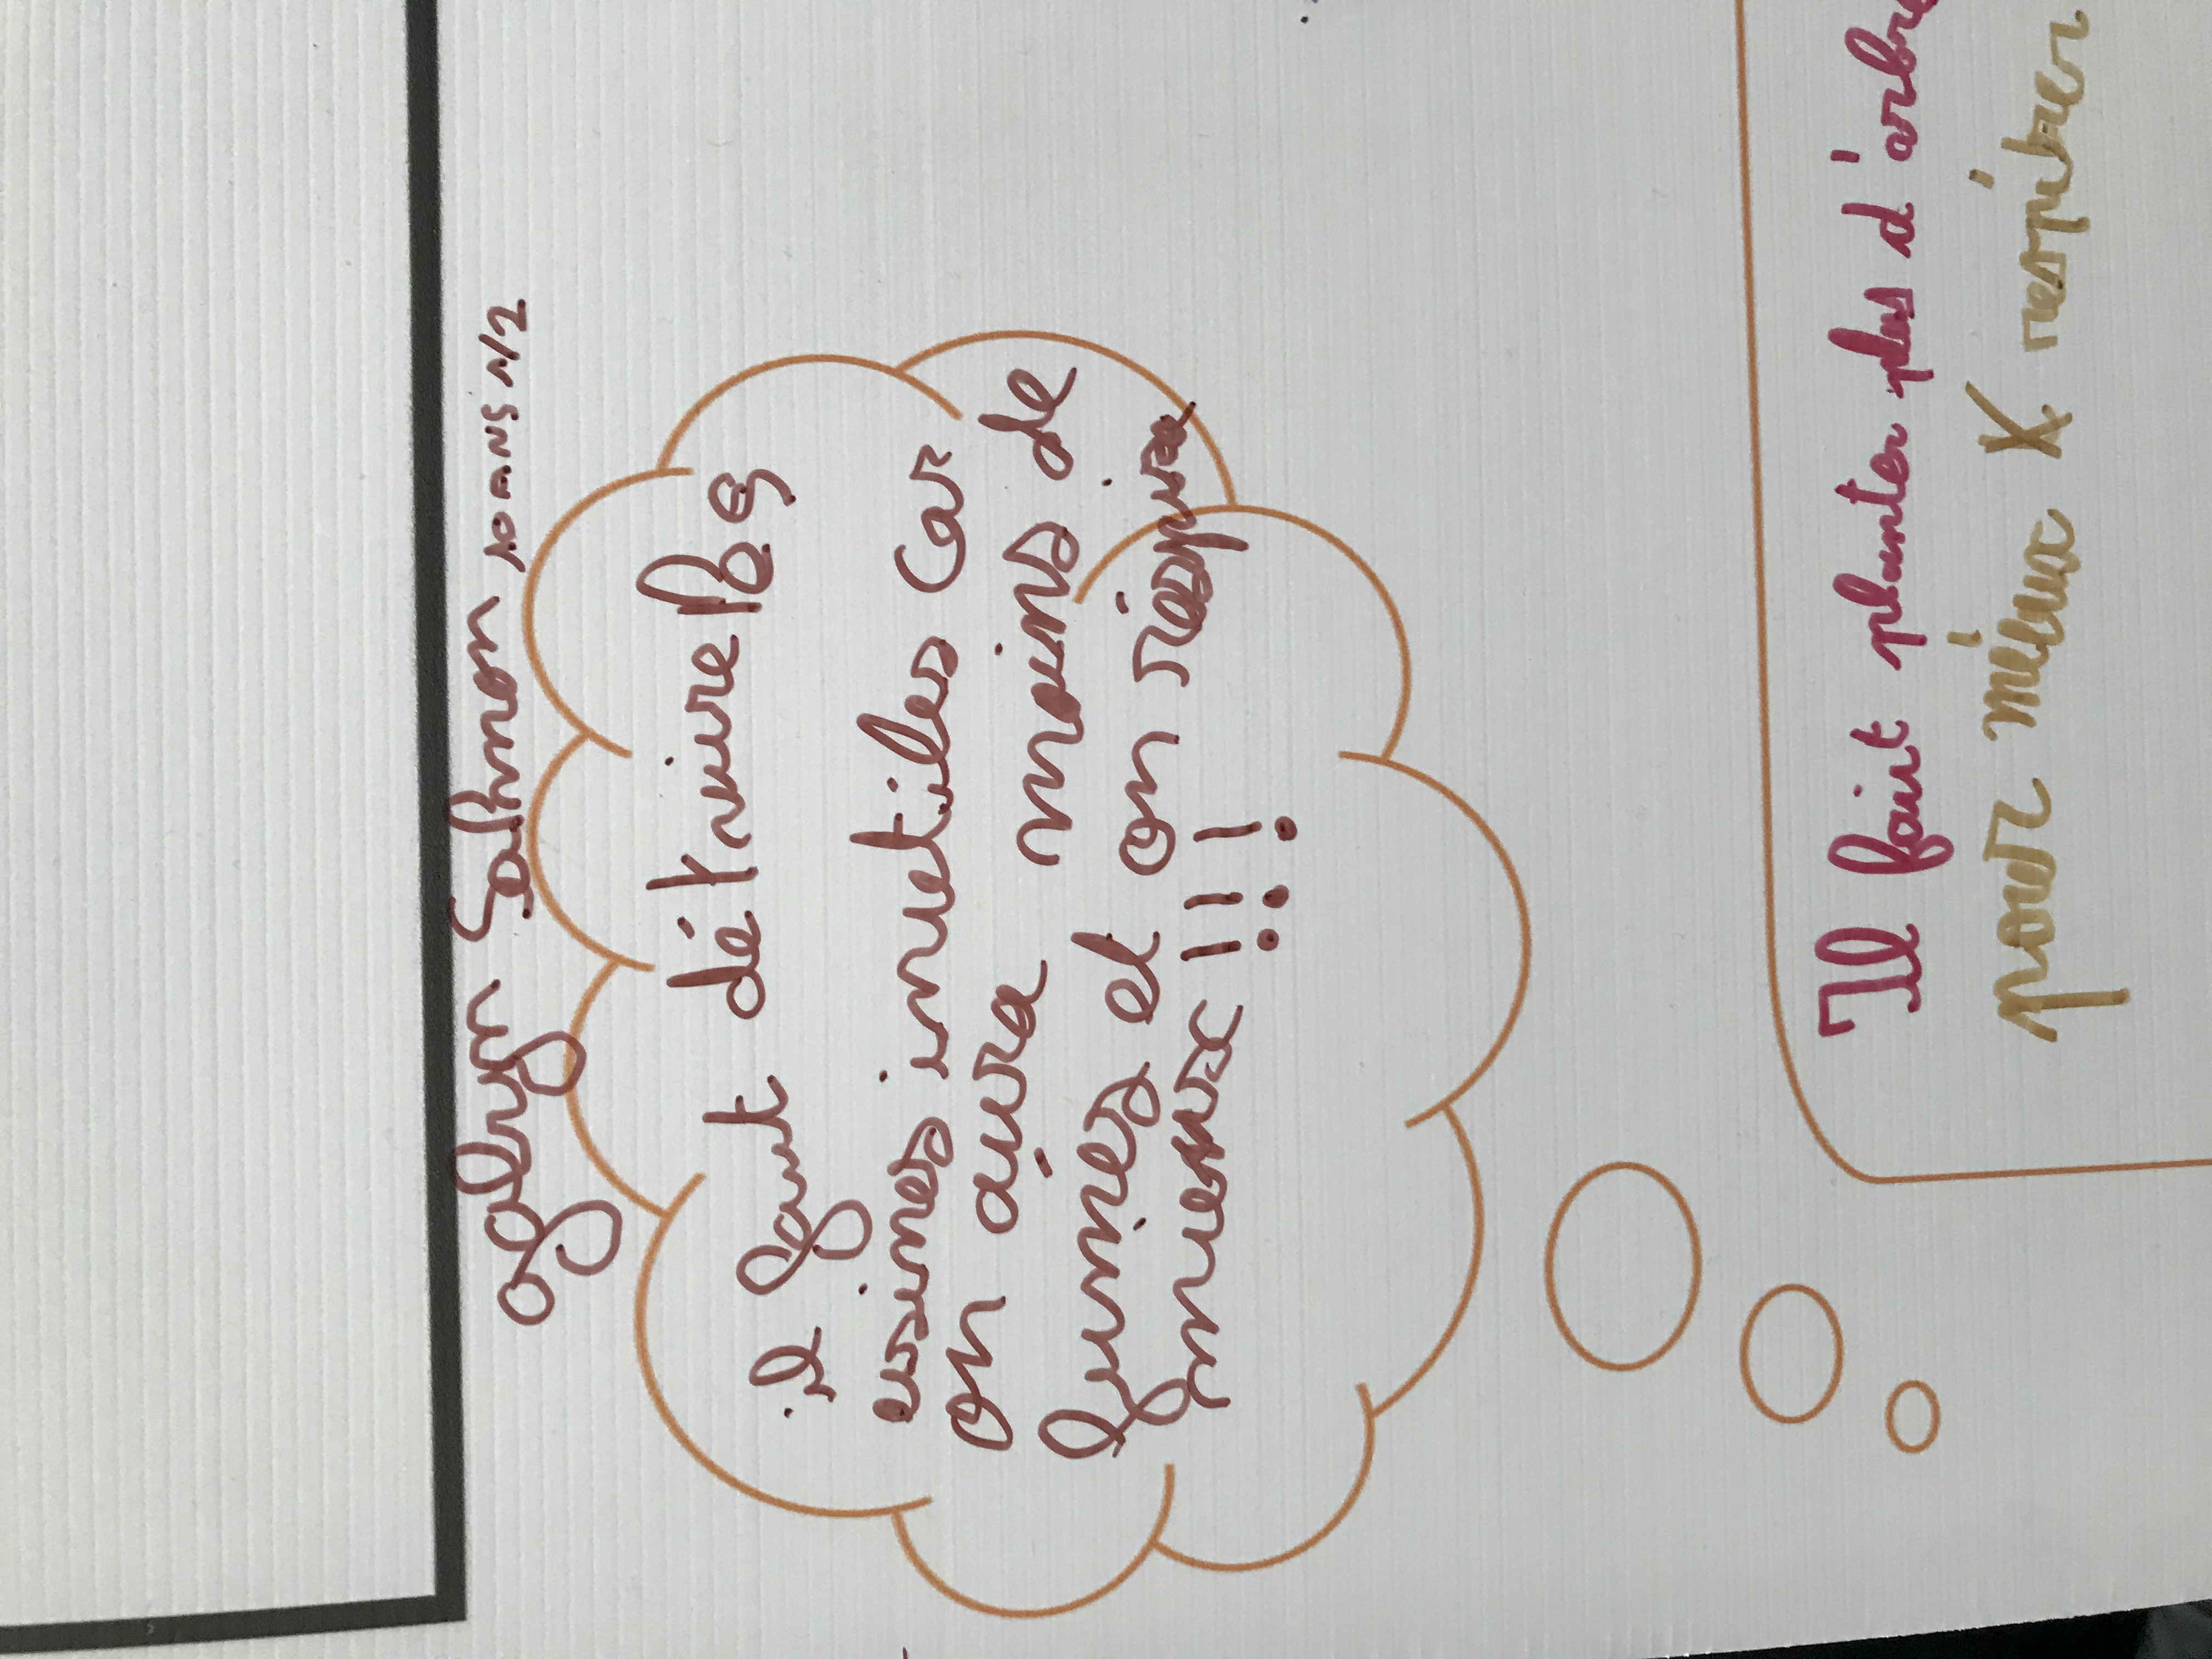 Salmon 10 ans 1/2
il faut détruire les
usines inutiles car
on aura moins de
fumées et on réspira
mieux !!!
Il fait planter plus d'arbre
pour miéux X respirer